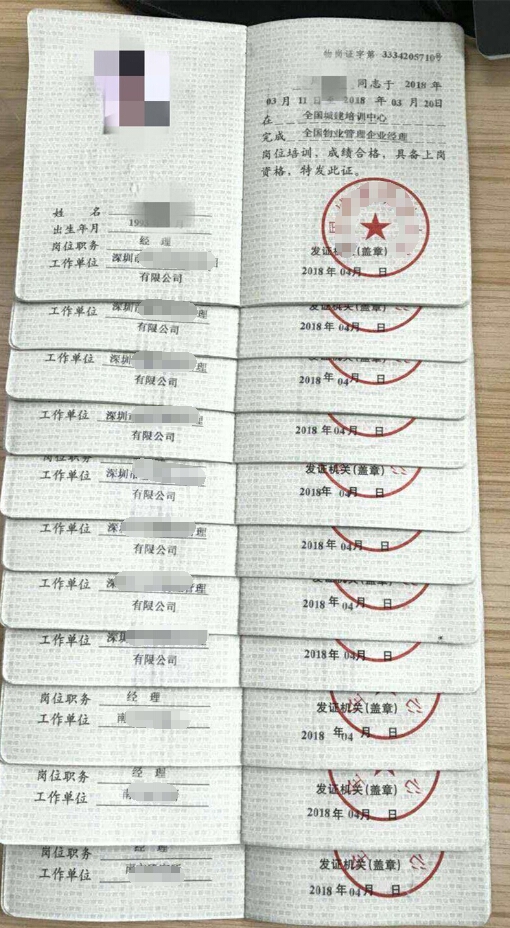 物岗证字第 3334205710号
同志于 2018 年
03 月 11日至 2018 年 03 月 20日
在 全国城建培训中心
完成 全国物业管理企业经理
岗位培训，成绩合格，具备上岗
资格，特发此证。
姓 名
出生年月
岗位职务 经 理
工作单位 深圳
有限公司
发证机关(盖章)
2018 年 04月 日
工作单位 深圳 理
有限公司
2018 年 04月 日
工作单位 深圳 理
有限公司
2018 年 04 日
工作单位 深圳 理
有限公司
2018 年 04月 日
岗位职务
工作单位 深圳 理
有限公司
发证机关(盖章)
2018年 04月 日
工作单位 深 管理
有限公司
2018 年 04月 日
工作单位 深 管理
有限公司
2018 年 04 月 日
工作单位 深圳
有限公司
2018 年 04月 日
岗位职务 经 理
工作单位 南
发证机关(盖章)
2018 年 04 月 日
岗位职务 经 理
工作单位 南
发证机关(盖章)
2018 年 04月 日
岗位职务 经 理
工作单位 南
发证机关(盖章)
2018 年 04月 日